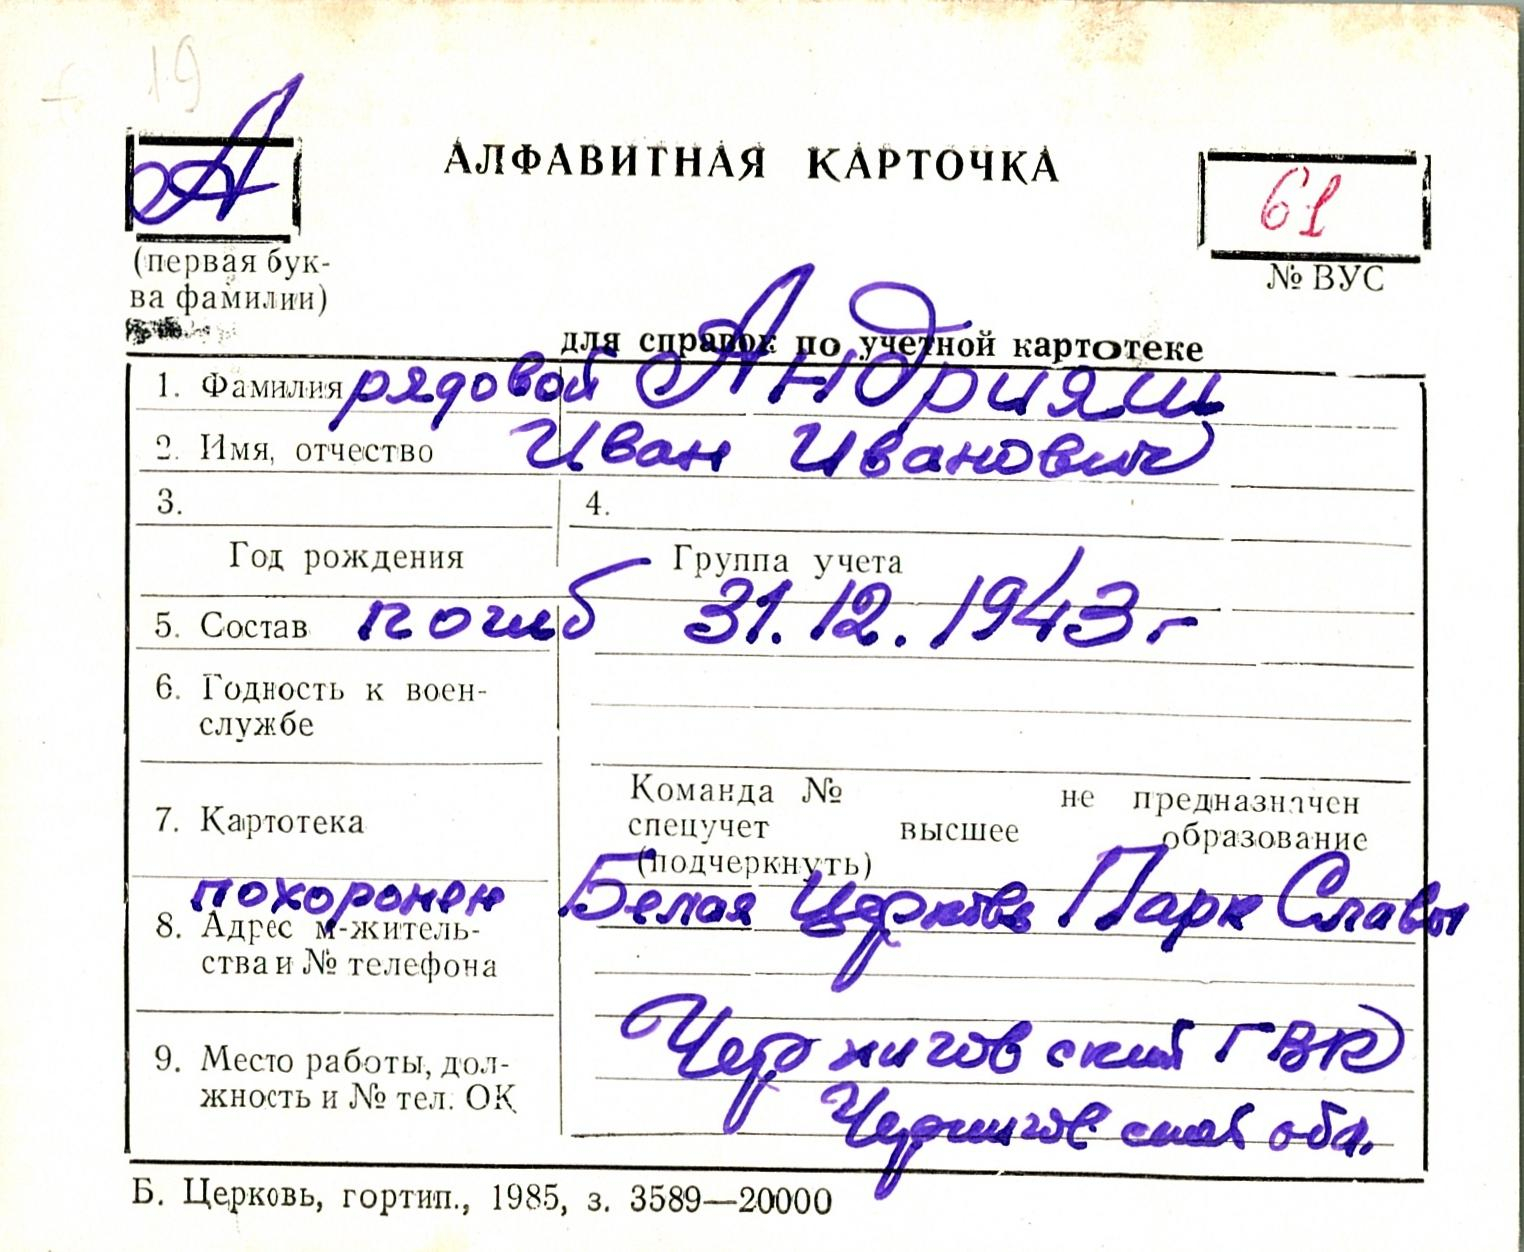 19
А
АЛФАВИТНАЯ КАРТОЧКА
61
(первая бук-
ва фамилии)
№ ВУС
для справок по учетной картотеке
1. Фамилия рядовой Андрияш
2. Имя, отчество Иван Иванович
3. 4.
Год рождения Группа учета
5. Состав погиб 31.12.1943 г
6. Годность к воен-
службе
Команда № не предназначен
7. Картотека спецучет высшее образование
(подчеркнуть)
похоронен Белая Церковь Парк Славы
8. Адрес м-житель-
ства и № телефона
Черниговский ГВК
9. Место работы, дол-
жность и № тел. ОК
Черниговской обл.
Б. Церковь, гортип., 1985, з. 3589—20000